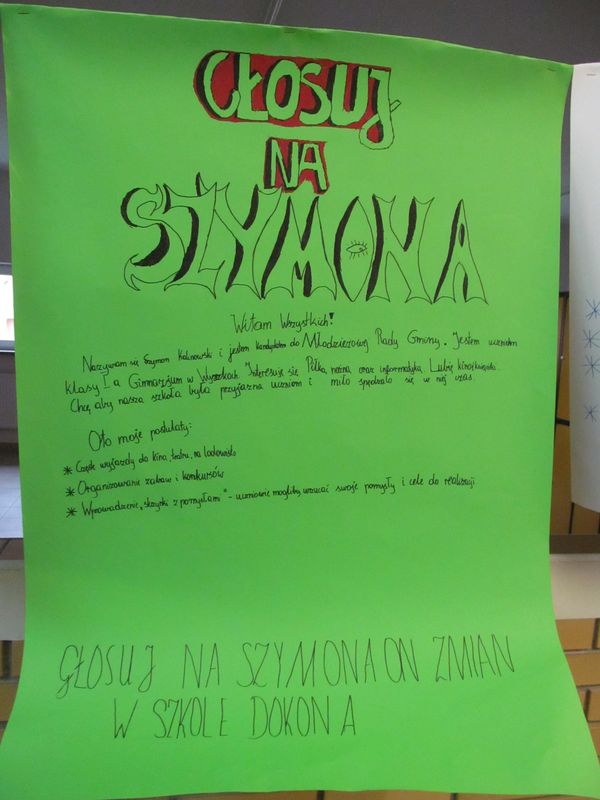 GŁOSUJ
NA
SZYMONA
Witam Wszystkich!
Nazywam się Szymon Kalinowski i jestem kandydatem do Młodzieżowej Rady Gminy. Jestem uczniem
klasy I a Gimnazjum w Wyszkach. Interesuję się Piłką nożną oraz informatyką. Lubię kino i książki.
Chcę, aby nasza szkoła była przyjazna uczniom i miło spędzało się w niej czas.
Oto moje postulaty:
* Częste wyjazdy do kina, teatru, na lodowisko
* Organizowanie zabaw i konkursów
* Wprowadzenie „skrzynki z pomysłami" - uczniowie mogliby wrzucać swoje pomysły i cele do realizacji
GŁOSUJ NA SZYMONA ON ZMIAN
W SZKOLE DOKONA